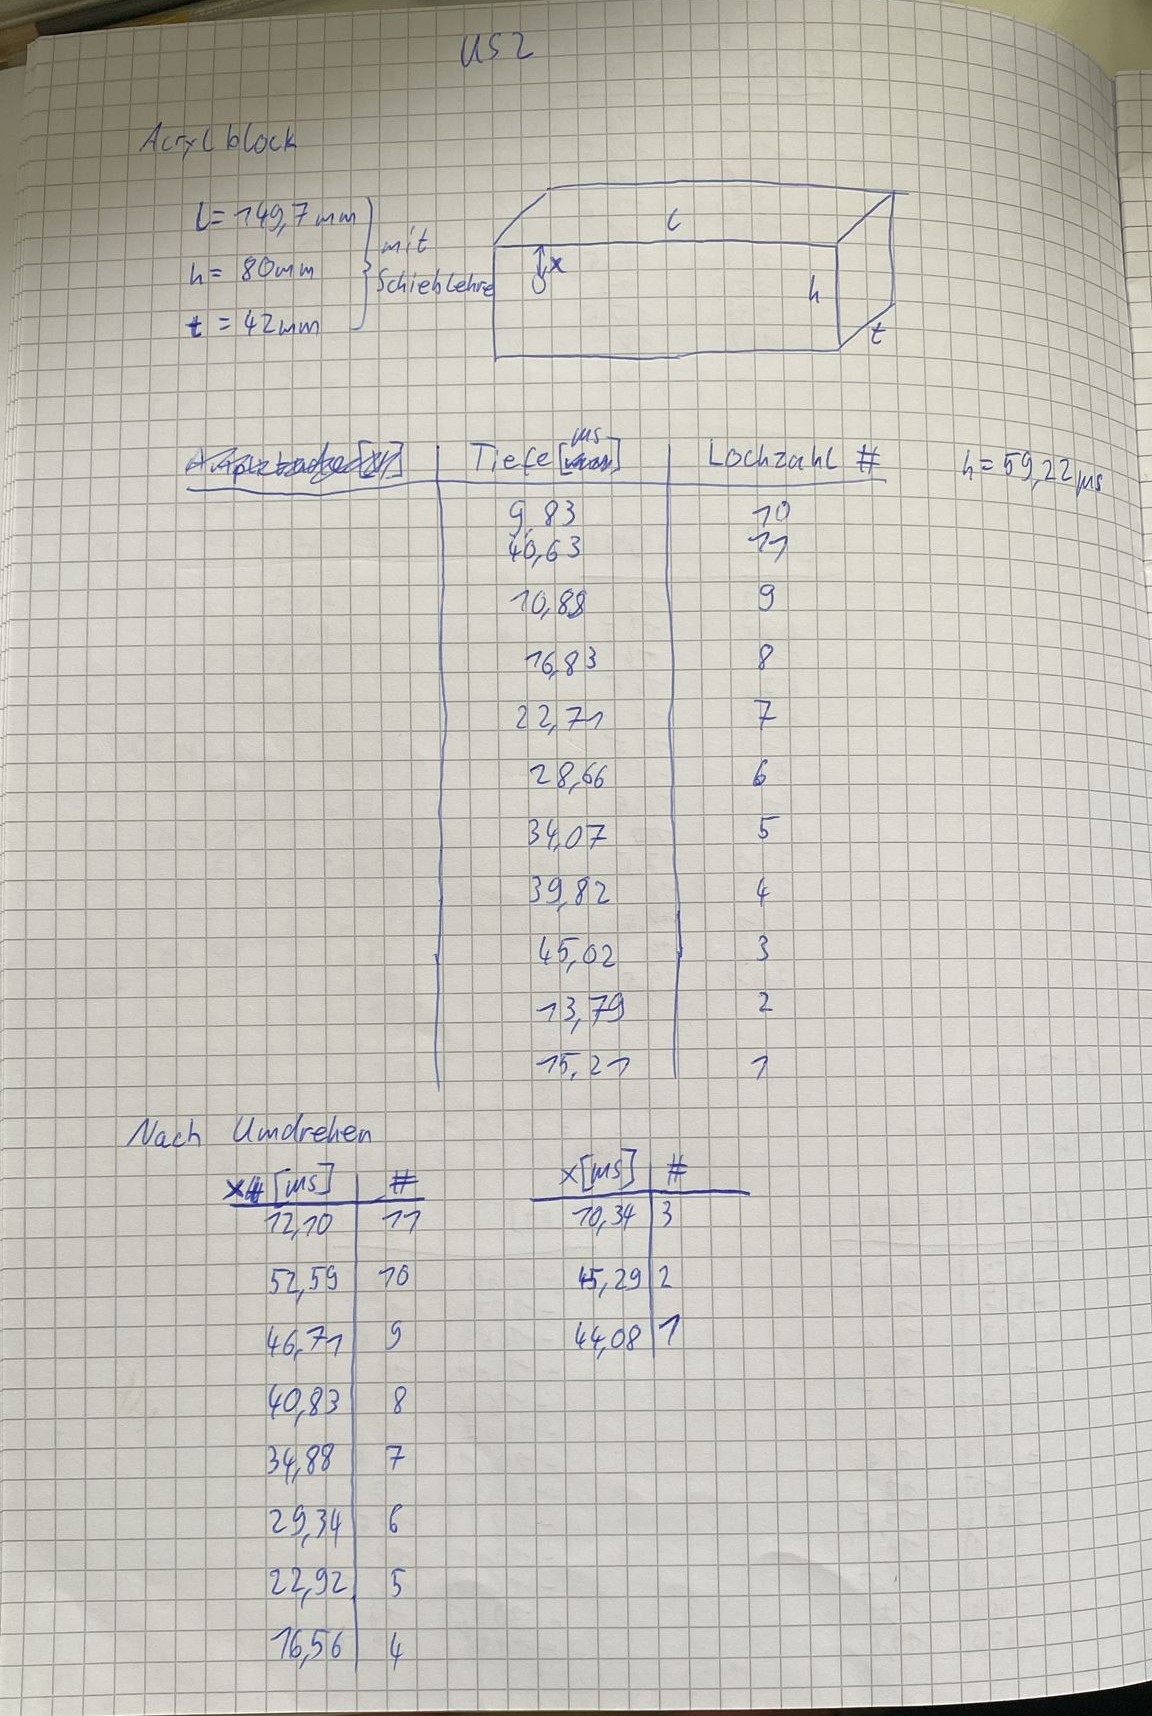 US2
Acrylblock
l = 149,7 mm
h = 80 mm
t = 42 mm
mit
Schieblehre
l
x
h
t
Tiefe [µs]
Lochzahl #
h = 59,22 µs
9,83 10
40,63 11
10,88 9
16,83 8
22,71 7
28,66 6
34,07 5
39,82 4
45,02 3
13,79 2
15,21 1
Nach Umdrehen
x [µs] #
12,10 11
52,59 10
46,71 9
40,83 8
34,88 7
29,34 6
22,92 5
16,56 4
x [µs] #
10,34 3
45,29 2
44,08 1